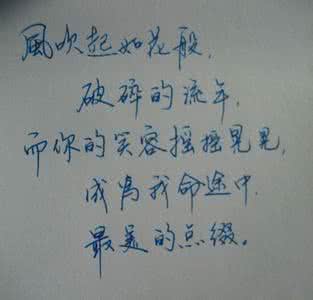 風吹起如花般,
破碎的流年,
而你的笑容摇摇晃晃,
成為我命途中
最美的点缀。